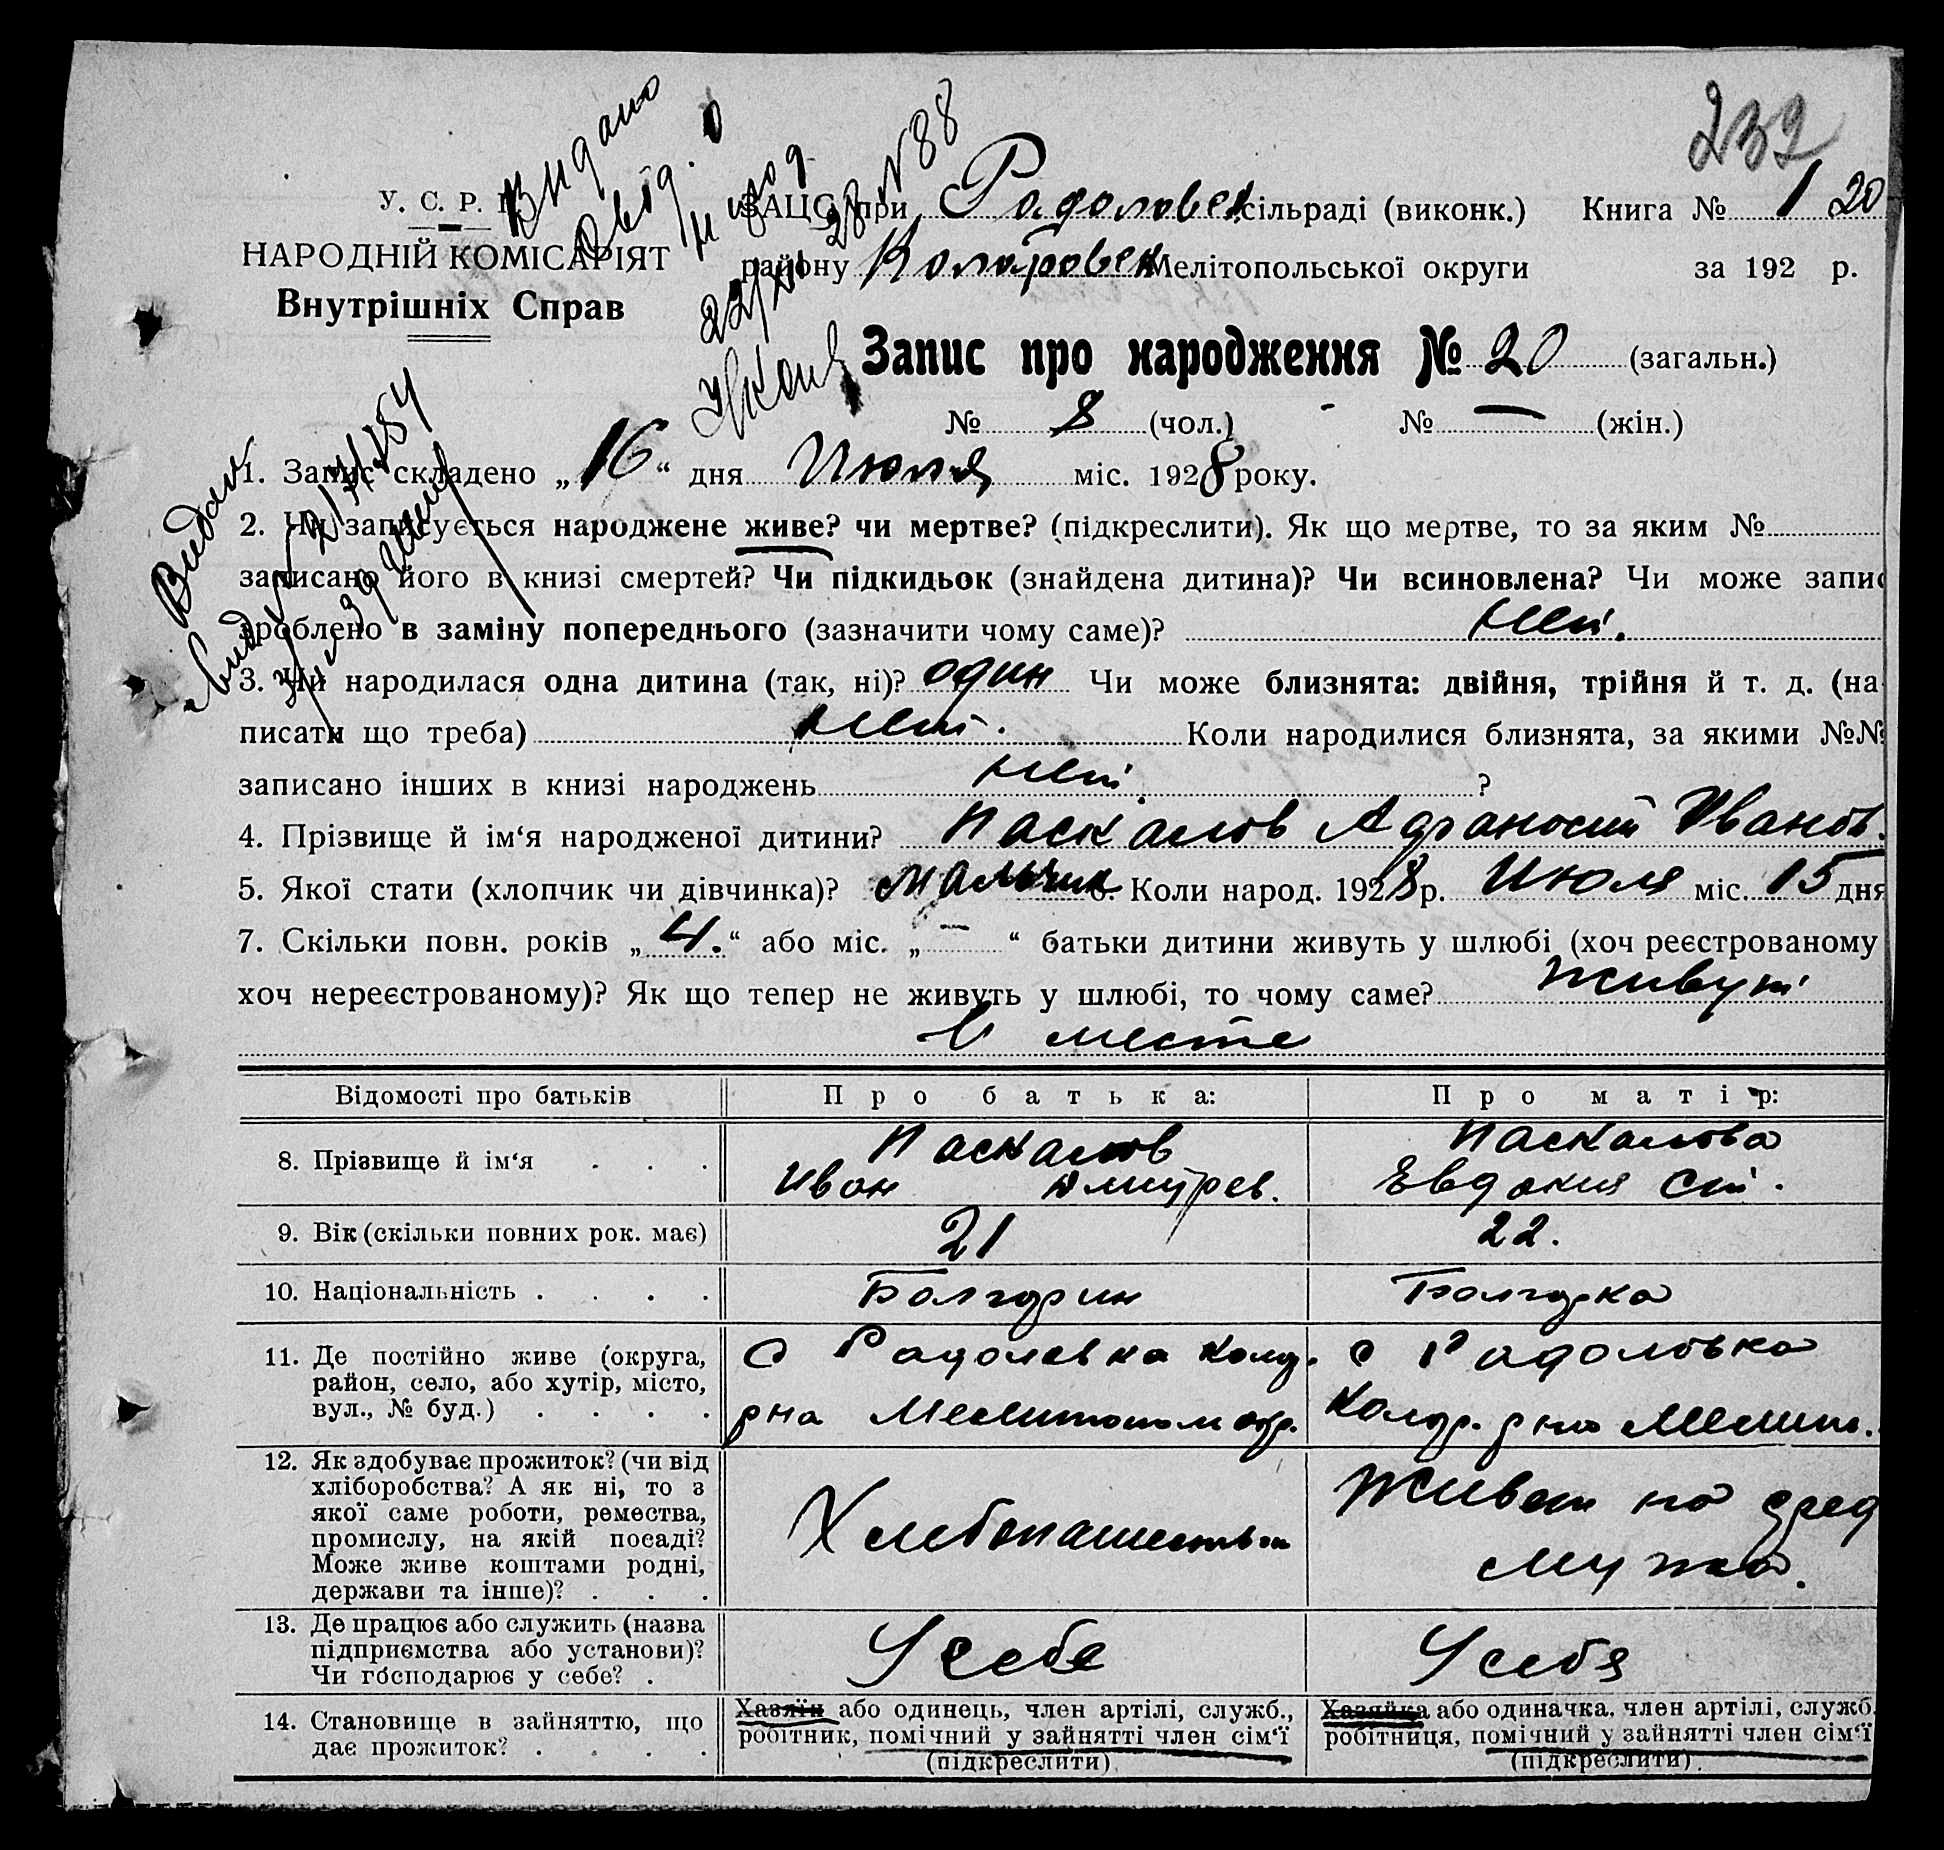 232
Видано
У. С. Р. Р.
ЗАЦС при Радоловск сільраді (виконк.) Книга № 1 20
НАРОДНІЙ КОМІСАРІЯТ
району Коларовск Мелітопольської округи за 192 р.
Внутрішніх Справ
22/XII 28 N 88
Запис про народження № 20 (загальн.)
№ 8 (чол.) № — (жін.)
1. Запис складено „ 16 “ дня Июля міс. 1928 року.
2. Чи записується народжене живе? чи мертве? (підкреслити). Як що мертве, то за яким №
записано його в книзі смертей? Чи підкидьок (знайдена дитина)? Чи всиновлена? Чи може запис
зроблено в заміну попереднього (зазначити чому саме)? нет.
3. Чи народилася одна дитина (так, ні)? один Чи може близнята: двійня, трійня й т. д. (на-
писати що треба) нет. Коли народилися близнята, за якими №№
записано інших в книзі народжень нет. ?
4. Прізвище й ім‘я народженої дитини? Паскалов Афанасий Иванов.
5. Якої стати (хлопчик чи дівчинка)? мальчик 6. Коли народ. 1928 р. Июля міс. 15 дня
7. Скільки повн. років „ 4. “ або міс. „ — “ батьки дитини живуть у шлюбі (хоч реєстрованому
хоч нереєстрованому)? Як що тепер не живуть у шлюбі, то чому саме? живут
в месте
Видано
Відомості про батьків Про батька: Про матір:
8. Прізвище й ім‘я . . . Паскалов Иван Дмитрев. Паскалова Евдокия Ст.
9. Вік (скільки повних рок. має) 21 22.
10. Національність . . . . Болгарин Болгарка
11. Де постійно живе (округа,
район, село, або хутір, місто,
вул., № буд.) . . . .
с Радоловка Колар.
рна Мелитополь окр.
с Радоловка
Колар. рна Мелит.
12. Як здобуває прожиток? (чи від
хліборобства? А як ні, то з
якої саме роботи, ремества,
промислу, на якій посаді?
Може живе коштами родні,
держави та інше)? . . .
Хлебопашеством
Живет на сред
мужа.
13. Де працює або служить (назва
підприємства або установи)?
Чи господарює у себе? .
У себе
У себя
14. Становище в зайняттю, що
дає прожиток? . . . .
Хазяїн або одинець, член артілі, служб.,
робітник, помічний у зайнятті член сім‘ї
(підкреслити)
Хазяйка або одиначка, член артілі, служб.
робітниця, помічний у зайнятті член сім‘ї
(підкреслити).